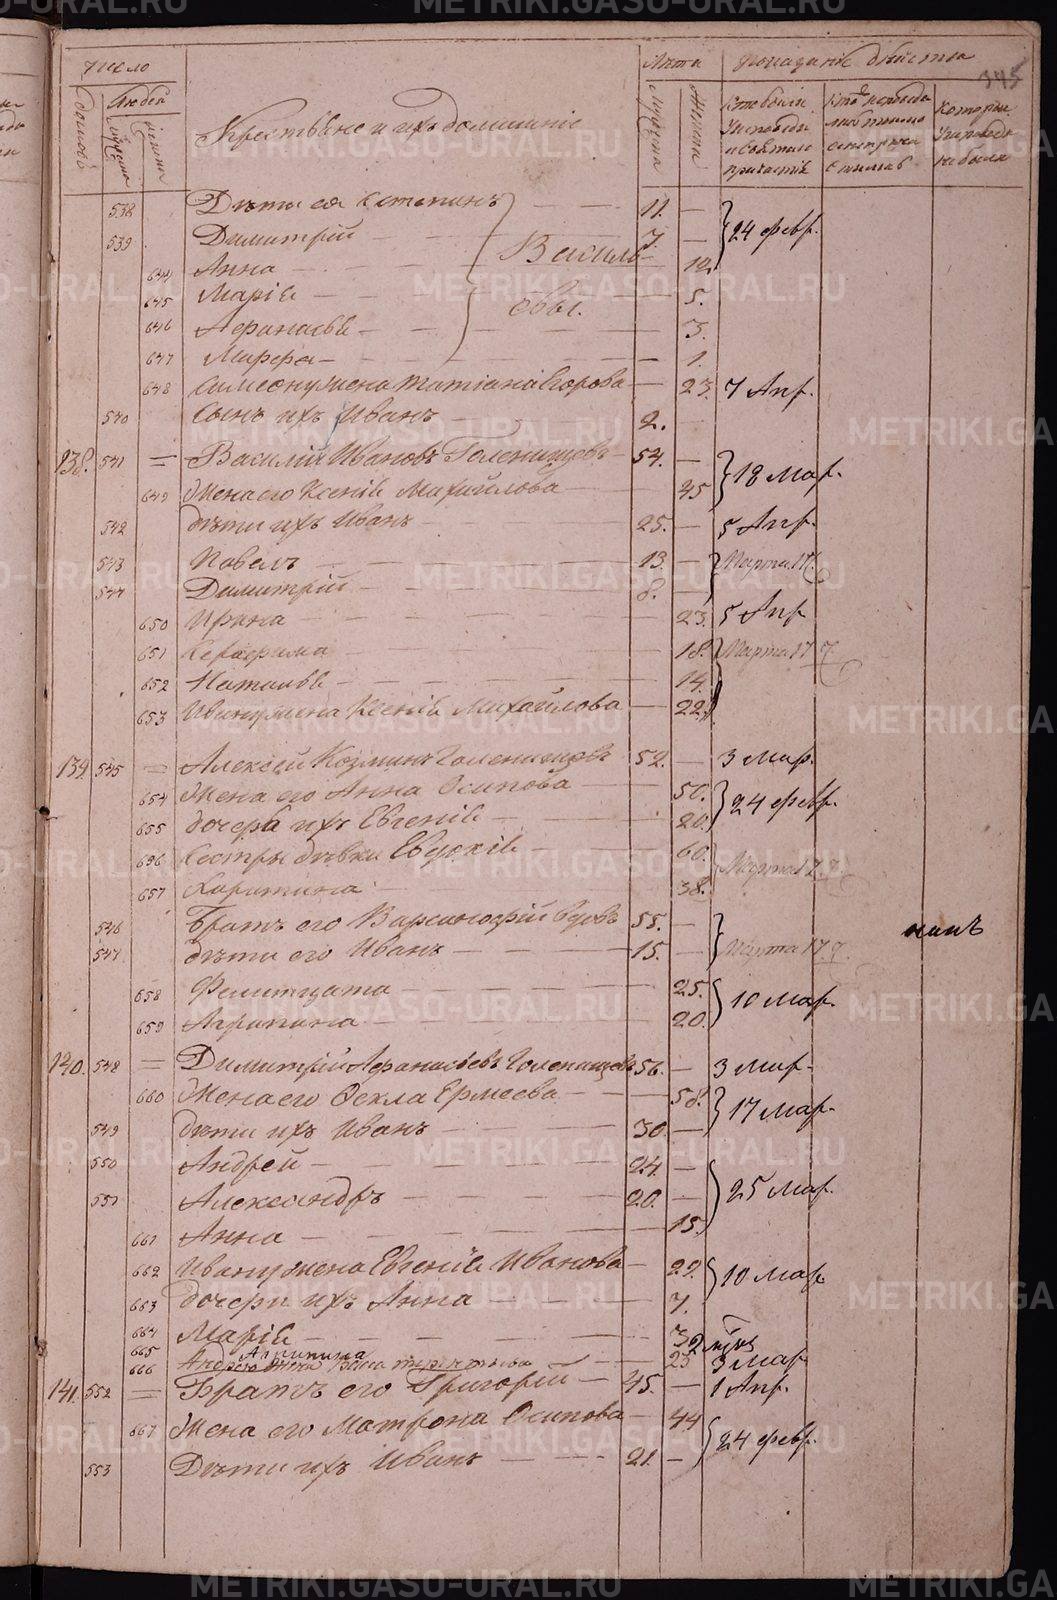 345
число
Лѣта
Показаніе дѣйства
домовъ
людей
мужеска
женска
Крестьяне и ихъ домашніе
мужеска
женска
Кто были
у исповѣди
и святаго
причастія
Которы
у исповѣди
не были
538 Дѣти ея Степанъ 11. —
539 Димитрій 7 — 24 февр.
Василь-
евы.
644 Анна — 12
645 Марія — 5.
646 Афанасья — 3.
647 Марфа — 1.
648 Симеону жена Татіана Егорова — 23. 7 Апр.
540 Сынъ ихъ Иванъ 2.
138. 541 = Василій Ивановъ Голенищевъ — 54. —
649 Жена его Ксенія Михайлова 45 18 Мар.
542 дѣти ихъ Иванъ — 25. — 5 Апр.
543 Павелъ 13. — Марта 17
544 Димитрій 8. —
650 Ирина 23. 5 Апр
651 18. Марта 17
652 Наталья 14.
653 Ивану жена Ксенія Михайлова — 22.
139. 545 = Алексѣй Козминъ Голенищевъ 52. — 3 Мар.
654 Жена его Анна Осипова 50. 24 февр.
655 дочерь ихъ Евгенія — 20.
656 Сестры дѣвки Евдокія 60. Марта 17
657 Харитина 38.
546 Братъ его Варсанофій вдовъ 55. —
547 дѣти его Иванъ — 15. — Марта 17
658 Фелитцата 25. 10 Мар.
659 Агрипина 20.
140. 548 = Димитрій Афанасьевъ Голенищевъ 56. — 3 Мар.
660 Жена его Фекла Ермеева — 58. 17 Мар.
549 дѣти ихъ Иванъ — 30. —
550 Андрей — 24. —
551 Александръ — 20. — 25 Мар.
661 Анна — 15.
662 Ивану жена Евгенія Иванова — 29. 10 Мар.
663 дочери ихъ Анна 7.
664 Марія — 3
665 Агрипина
666 Андрею жена 25 3 Мар.
141. 552 = Братъ его Григорій — 45. — 1 Апр.
667 Жена его Матрона Осипова — 44
553 Дѣти ихъ Иванъ 21. — 24 февр.
METRIKI.GASO-URAL.RU